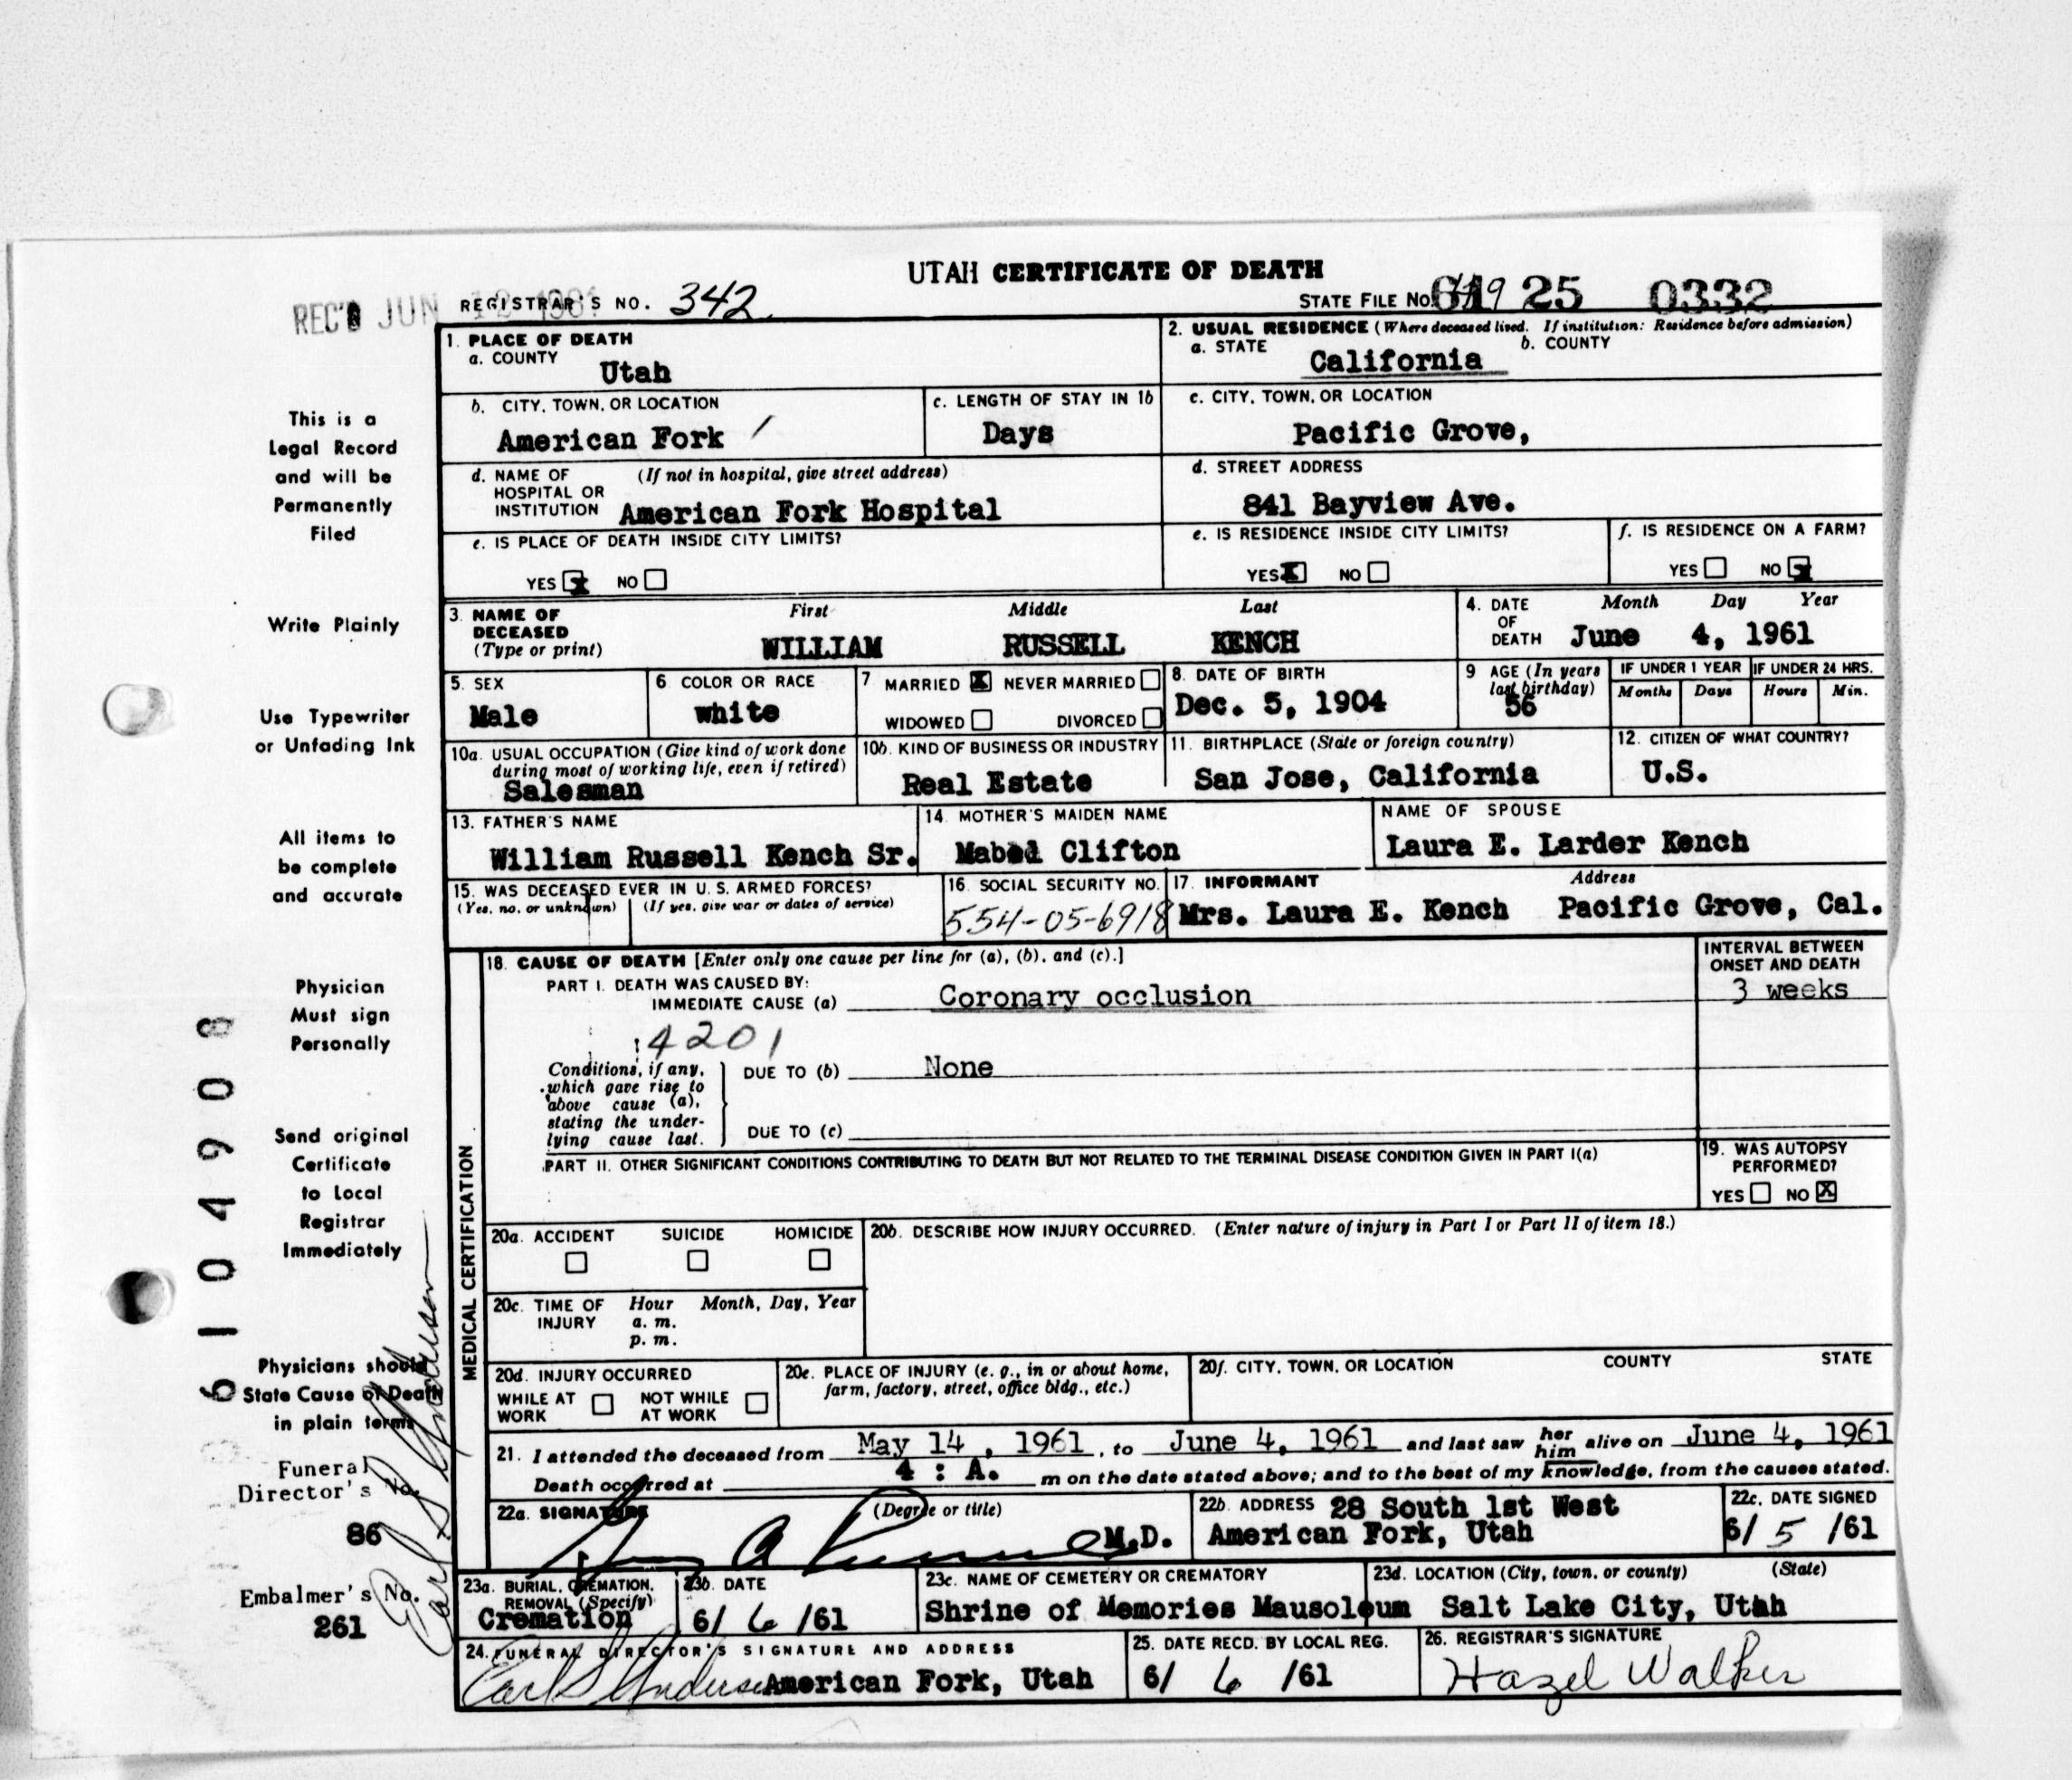 UTAH CERTIFICATE OF DEATH
REC'D JUN 12 1961 REGISTRAR'S NO. 342 STATE FILE NO. 25 0332
1. PLACE OF DEATH
a. COUNTY
Utah
2. USUAL RESIDENCE (Where deceased lived. If institution: Residence before admission)
a. STATE b. COUNTY
California
b. CITY, TOWN, OR LOCATION
American Fork
c. LENGTH OF STAY IN 1b
Days
c. CITY, TOWN, OR LOCATION
Pacific Grove,
d. NAME OF (If not in hospital, give street address)
HOSPITAL OR
INSTITUTION American Fork Hospital
d. STREET ADDRESS
841 Bayview Ave.
e. IS PLACE OF DEATH INSIDE CITY LIMITS?
YES x NO
e. IS RESIDENCE INSIDE CITY LIMITS?
YES X NO
f. IS RESIDENCE ON A FARM?
YES NO x
3. NAME OF First Middle Last
DECEASED
(Type or print) WILLIAM RUSSELL KENCH
4. DATE Month Day Year
OF
DEATH June 4, 1961
5. SEX
Male
6. COLOR OR RACE
white
7 MARRIED X NEVER MARRIED
WIDOWED DIVORCED
8. DATE OF BIRTH
Dec. 5, 1904
9 AGE (In years
last birthday)
56
IF UNDER 1 YEAR IF UNDER 24 HRS.
Months Days Hours Min.
10a. USUAL OCCUPATION (Give kind of work done
during most of working life, even if retired)
Salesman
10b. KIND OF BUSINESS OR INDUSTRY
Real Estate
11. BIRTHPLACE (State or foreign country)
San Jose, California
12. CITIZEN OF WHAT COUNTRY?
U.S.
13. FATHER'S NAME
William Russell Kench Sr.
14. MOTHER'S MAIDEN NAME
Mabel Clifton
NAME OF SPOUSE
Laura E. Larder Kench
15. WAS DECEASED EVER IN U. S. ARMED FORCES?
(Yes, no, or unknown) (If yes, give war or dates of service)
16. SOCIAL SECURITY NO.
554-05-6918
17. INFORMANT Address
Mrs. Laura E. Kench Pacific Grove, Cal.
MEDICAL CERTIFICATION
18. CAUSE OF DEATH [Enter only one cause per line for (a), (b), and (c).]
INTERVAL BETWEEN
ONSET AND DEATH
PART I. DEATH WAS CAUSED BY:
IMMEDIATE CAUSE (a) Coronary occlusion 3 weeks
4201
Conditions, if any,
which gave rise to
above cause (a),
stating the under-
lying cause last.
DUE TO (b) None
DUE TO (c)
PART II. OTHER SIGNIFICANT CONDITIONS CONTRIBUTING TO DEATH BUT NOT RELATED TO THE TERMINAL DISEASE CONDITION GIVEN IN PART I(a)
19. WAS AUTOPSY
PERFORMED?
YES NO X
20a. ACCIDENT SUICIDE HOMICIDE
20b. DESCRIBE HOW INJURY OCCURRED. (Enter nature of injury in Part I or Part II of item 18.)
20c. TIME OF Hour Month, Day, Year
INJURY a. m.
p. m.
20d. INJURY OCCURRED
WHILE AT NOT WHILE
WORK AT WORK
20e. PLACE OF INJURY (e. g., in or about home,
farm, factory, street, office bldg., etc.)
20f. CITY, TOWN, OR LOCATION COUNTY STATE
21. I attended the deceased from May 14, 1961, to June 4, 1961 and last saw her him alive on June 4, 1961
Death occurred at 4 : A. m on the date stated above; and to the best of my knowledge, from the causes stated.
22a. SIGNATURE (Degree or title)
M.D.
22b. ADDRESS 28 South 1st West
American Fork, Utah
22c. DATE SIGNED
6/ 5 /61
23a. BURIAL, CREMATION,
REMOVAL (Specify)
Cremation
23b. DATE
6/ 6 /61
23c. NAME OF CEMETERY OR CREMATORY
Shrine of Memories Mausoleum
23d. LOCATION (City, town, or county) (State)
Salt Lake City, Utah
24. FUNERAL DIRECTOR'S SIGNATURE AND ADDRESS
Earl S Anderson American Fork, Utah
25. DATE RECD. BY LOCAL REG.
6/ 6 /61
26. REGISTRAR'S SIGNATURE
Hazel Walker
This is a
Legal Record
and will be
Permanently
Filed
Write Plainly
Use Typewriter
or Unfading Ink
All items to
be complete
and accurate
Physician
Must sign
Personally
Send original
Certificate
to Local
Registrar
Immediately
Physicians should
State Cause of Death
in plain terms
Funeral
Director's No.
86
Embalmer's No.
261
Earl S Anderson
6104908